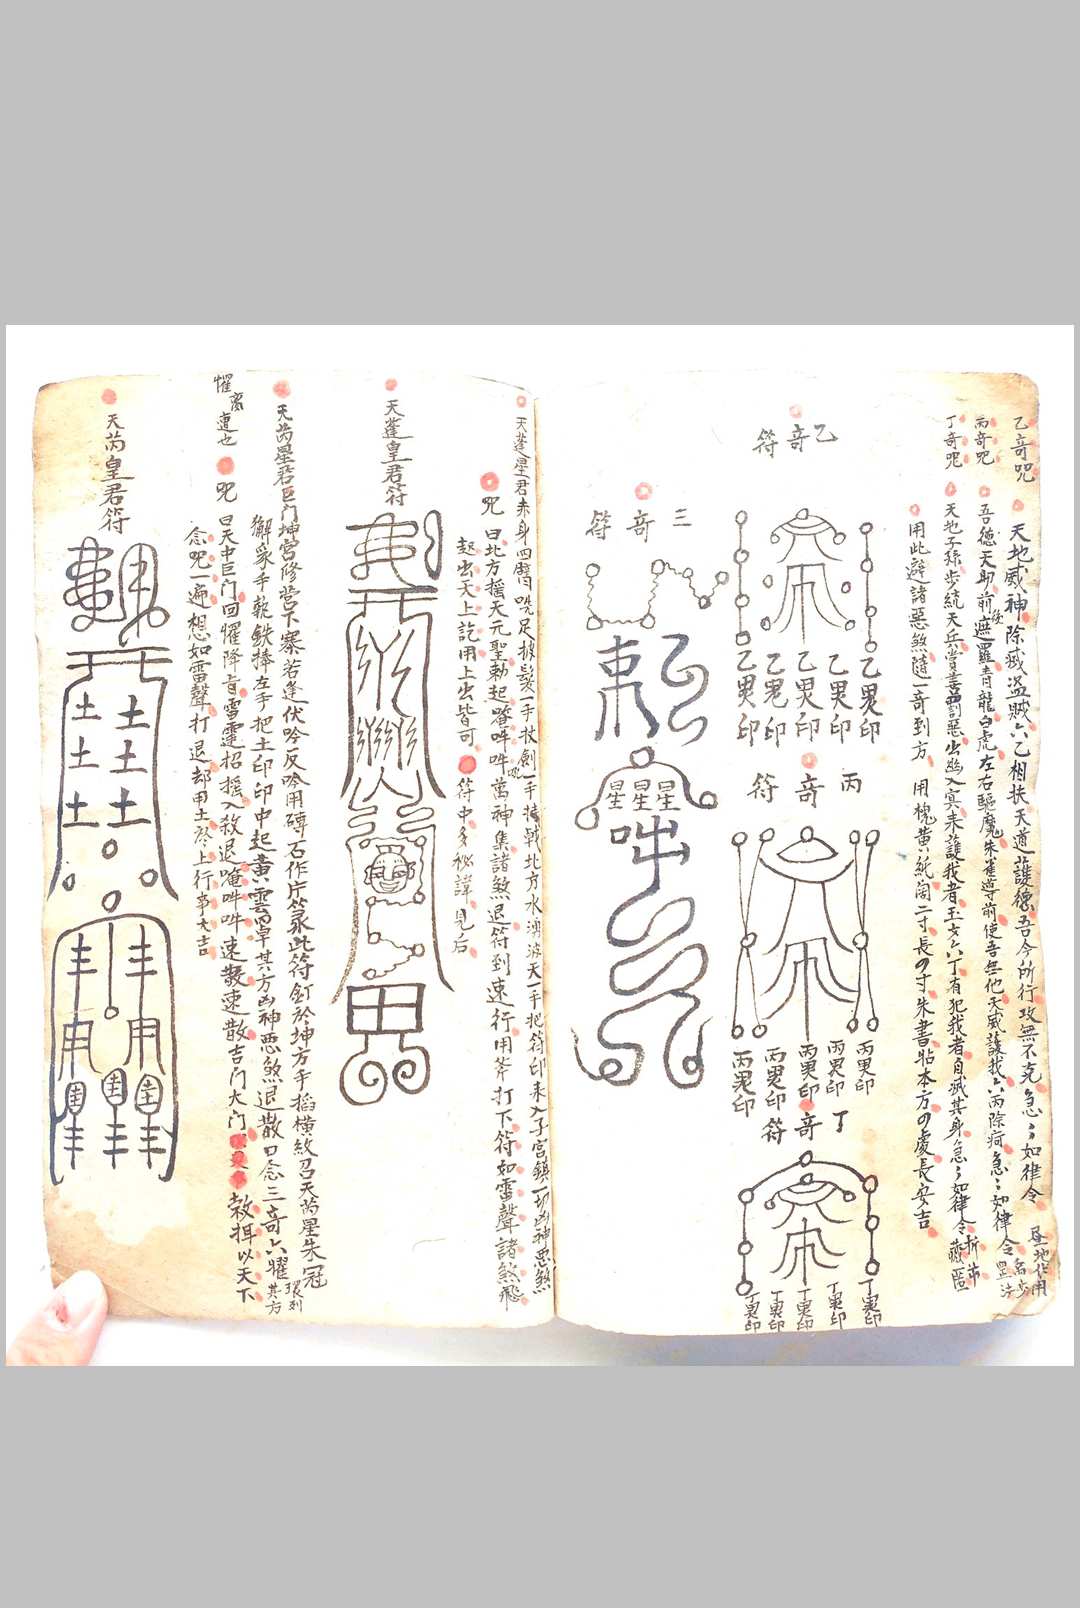 乙奇咒 天地威神除滅盗賊六乙相扶天道護德吾今所行攻無不克急〻如律令
丙奇咒 吾德天助前後遮羅青龍白虎左右驅魔朱雀導前使吾無他天威護我六丙除疴急〻如律令
丁奇咒 天地子孫步統天兵賞善罰惡出幽入冥来護我者玉女六丁有犯我者自滅其身急〻如律令
用此避諸惡煞隨一奇到方 用槐黄紙闊二寸長四寸朱書帖本方四處長安吉
乙奇符
乙男印
乙男印
乙男印
乙男印
乙男印
丙奇符
丙男印
丙男印
丙男印
丙男印
丙男印
丁奇符
丁男印
丁男印
丁男印
丁男印
丁男印
三奇符
星星星
天蓬星君赤身四臂跣足披髮一手扙劍一手擒戟北方水湧波天一手把符印来入子宮鎮一切凶神惡煞
咒曰北方揺天元聖勅起 吽吽萬神集諸煞退符到速行用斧打下符如雷聲諸煞飛
起出天上訖用上出皆可 符中多秘諱見后
天蓬皇君符
天芮星君巨门坤宮修营下寨若逢伏吟反吟用磚石作片篆此符釘於坤方手掐横紋召天芮星朱冠
獬豸手執鉄捧左手把土印印中起黄雲罩其方凶神惡煞退散口念三奇六耀 環列其方
咒曰天中巨门回耀降 雪霆招摇入殺退唵吽吽速散速散吉门大门 以天下
念咒一遍想如雷聲打退却用土於上行事大吉
天芮皇君符
土土土土土土